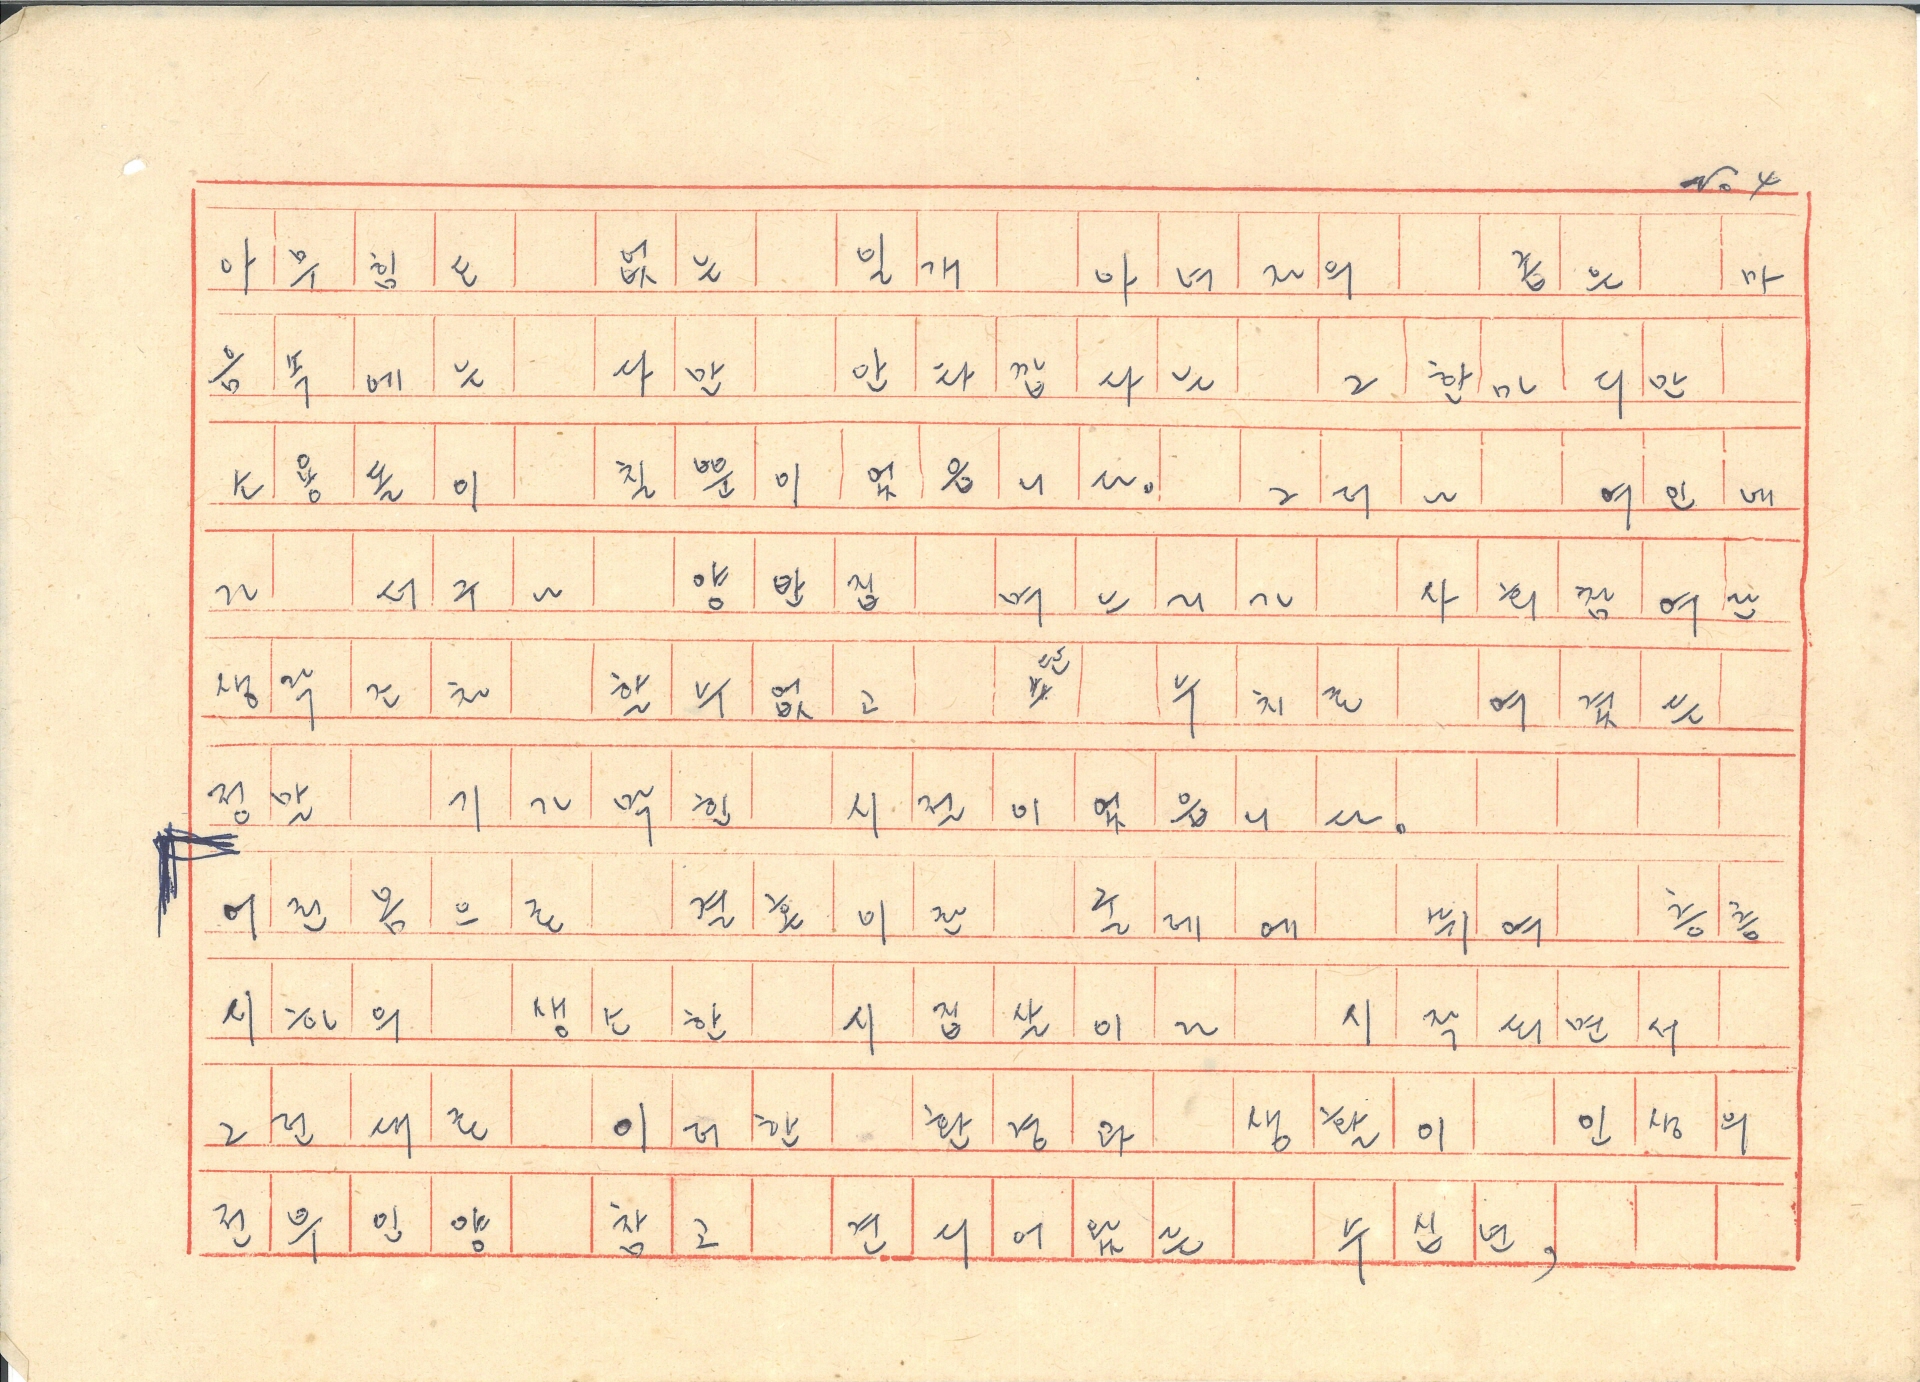 No 4
아무힘도 없는 일개 아녀자의 좁은 마
음속에는 다만 안타깝다는 그 한가지만
소용돌이 칠뿐이었읍니다. 그러나 여편네
라 더구나 양반집 며느리라 사회적여론
생각조차 할수없고 큰 수치로 여겼든
정말 기가막힌 시절이었읍니다.
어린몸으로 결혼이란 굴레에 씌여 층층
시하의 생소한 시집살이가 시작되면서
그런대로 이러한 환경과 생활이 인생의
전부인양 참고 견디어냈든 수삼년,